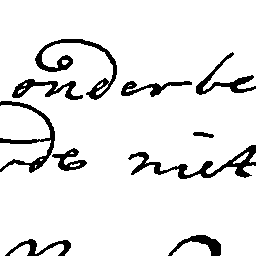 onderbe
rde niet